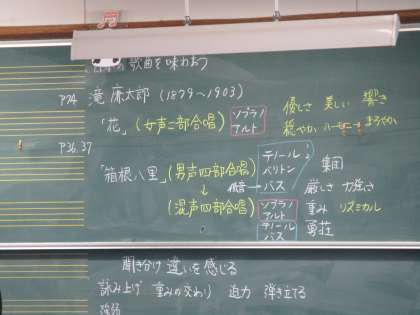 歌曲を味わおう
P74 滝廉太郎(1879〜1903)
「花」(女声二部合唱) ソプラノ アルト
優しさ 美しい 響き
穏やか ハーモニー まろやか
P36.37
「箱根八里」(男声四部合唱) テノール バリトン バス
↓
(混声四部合唱) ソプラノ アルト テノール バス
厳しさ 力強さ
重み リズミカル
勇荘
聞き分け 違いを感じる
詠み上げ 重みの交わり 迫力 弾き立てる
強弱